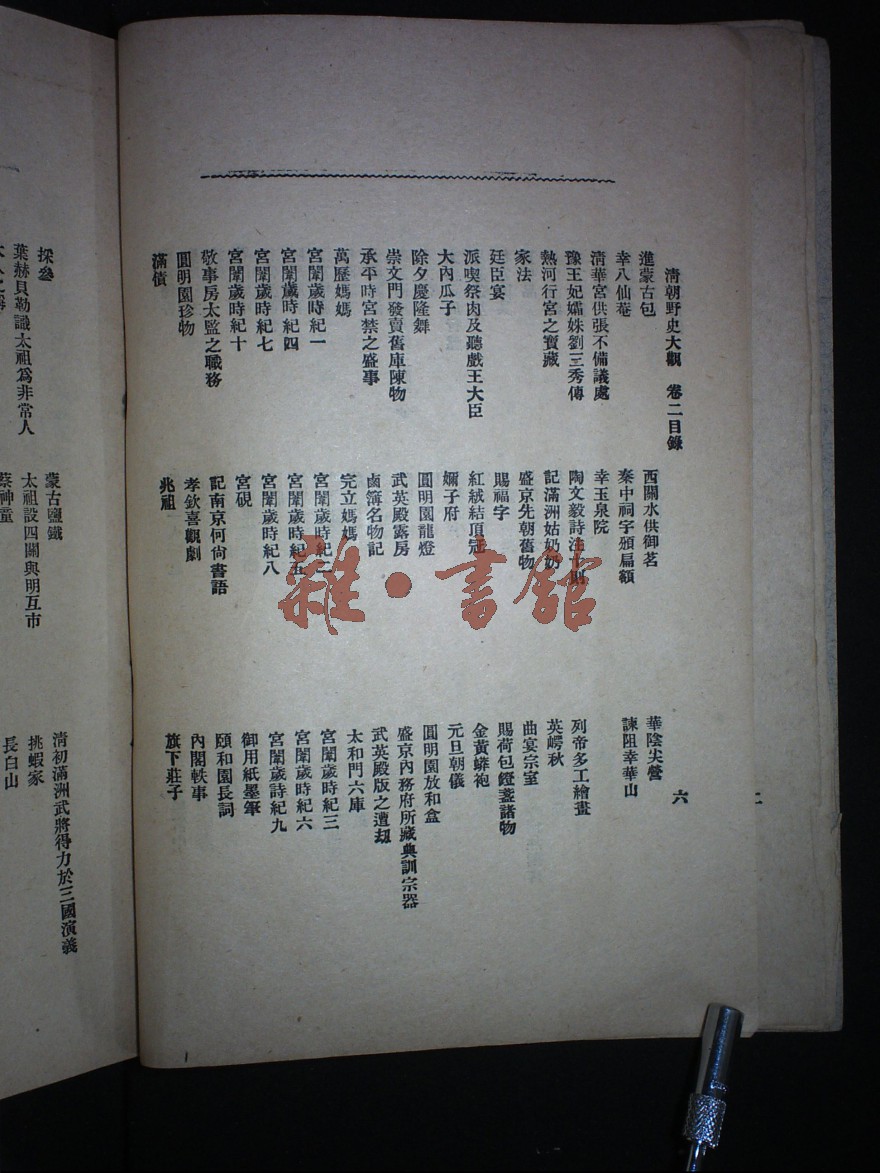 二
清朝野史大觀 卷二目錄 六
進蒙古包 西關水供御茗 華陰尖營
幸八仙菴 秦中祠宇頒扁額 諫阻幸華山
清華宮供張不備議處 幸玉泉院
豫王妃孀姝劉三秀傳 陶文毅詩注十則 列帝多工繪畫
熱河行宮之寶藏 記滿洲姑奶奶 英崿秋
家法 盛京先朝舊物 曲宴宗室
廷臣宴 賜福字 賜荷包鐙盞諸物
派喫祭肉及聽戲王大臣 紅絨結頂冠 金黃蟒袍
大內瓜子 嬭子府 元旦朝儀
除夕慶隆舞 圓明園龍燈 圓明園放和盒
崇文門發賣舊庫陳物 武英殿露房 盛京內務府所藏典訓宗器
承平時宮禁之盛事 鹵簿名物記 武英殿版之遭刧
萬歷媽媽 完立媽媽 太和門六庫
宮闈歲時紀一 宮闈歲時紀二 宮闈歲時紀三
宮闈歲時紀四 宮闈歲時紀五 宮闈歲時紀六
宮闈歲時紀七 宮闈歲時紀八 宮闈歲詩紀九
宮闈歲時紀十 宮硯 御用紙墨筆
敬事房太監之職務 記南京何尙書語 頤和園長詞
圓明園珍物 孝欽喜觀劇 內閣軼事
滿債 兆祖 旗下莊子
雜·書館
採參 蒙古鹽鐵 清初滿洲武將得力於三國演義
葉赫貝勒識太祖爲非常人 太祖設四關與明互市 挑蝦家
蔡神童 長白山